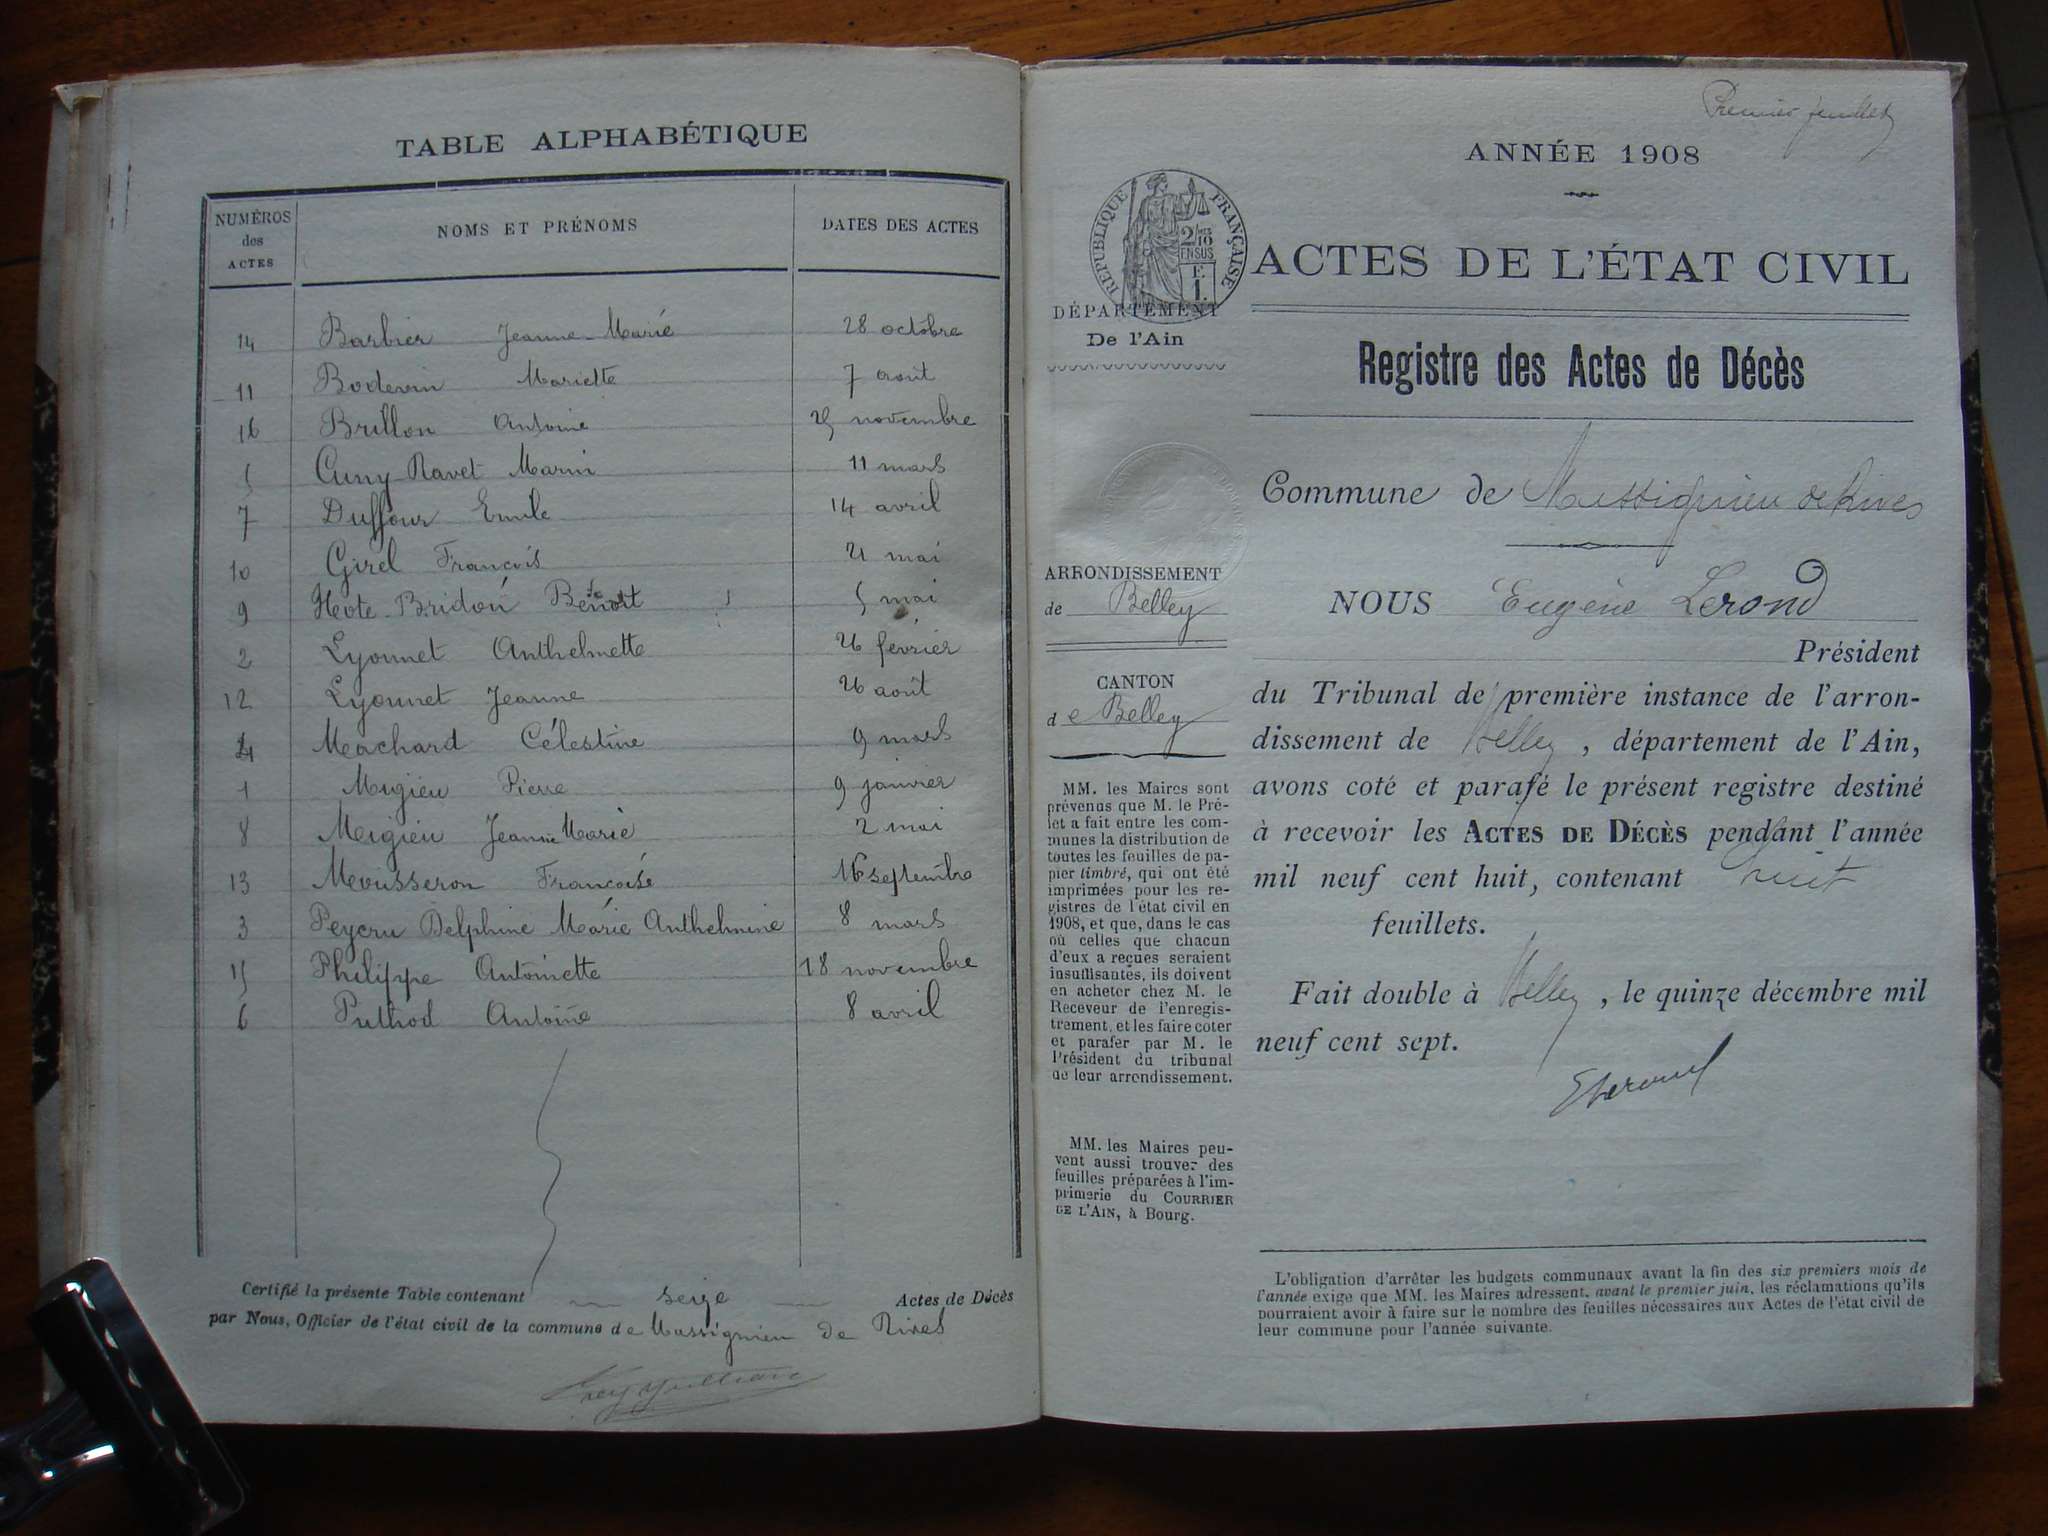 TABLE ALPHABÉTIQUE
NUMÉROS des ACTES NOMS ET PRÉNOMS DATES DES ACTES
14 Barbier Jeanne-Marie 28 octobre
11 Bodevin Mariette 7 août
16 Brillon Antoine 25 novembre
5 Cuny-Ravet Marin 11 mars
7 Duffour Emile 14 avril
10 Girel François 21 mai
9 Hote-Bridon Benoît 5 mai
2 Lyonnet Anthelmette 26 février
12 Lyonnet Jeanne 26 août
4 Machard Célestine 9 mars
1 Migieu Pierre 9 janvier
8 Migieu Jeanne Marie 2 mai
13 Mousseron Françoise 16 septembre
3 Peycru Delphine Marie Anthelmine 8 mars
15 Philippe Antoinette 18 novembre
6 Puthod Antoine 8 avril
Certifié la présente Table contenant seize Actes de Décès
par Nous, Officier de l'état civil de la commune de Massignieu de Rives
Premier feuillet
ANNÉE 1908
RÉPUBLIQUE FRANÇAISE
2/10 EN SUS
F. 1.
ACTES DE L'ÉTAT CIVIL
DÉPARTEMENT
De l'Ain
Registre des Actes de Décès
Commune de Massignieu de Rives
ARRONDISSEMENT
de Belley
CANTON
de Belley
NOUS Eugène Lerond
Président
du Tribunal de première instance de l'arron-
dissement de Belley, département de l'Ain,
avons coté et parafé le présent registre destiné
à recevoir les ACTES DE DÉCÈS pendant l'année
mil neuf cent huit, contenant huit
feuillets.
Fait double à Belley, le quinze décembre mil
neuf cent sept.
ELerond
MM. les Maires sont
prévenus que M. le Pré-
fet a fait entre les com-
munes la distribution de
toutes les feuilles de pa-
pier timbré, qui ont été
imprimées pour les re-
gistres de l'état civil en
1908, et que, dans le cas
où celles que chacun
d'eux a reçues seraient
insuffisantes, ils doivent
en acheter chez M. le
Receveur de l'enregis-
trement, et les faire coter
et parafer par M. le
Président du tribunal
de leur arrondissement.
MM. les Maires peu-
vent aussi trouver des
feuilles préparées à l'im-
primerie du COURRIER
DE L'AIN, à Bourg.
L'obligation d'arrêter les budgets communaux avant la fin des six premiers mois de
l'année exige que MM. les Maires adressent, avant le premier juin, les réclamations qu'ils
pourraient avoir à faire sur le nombre des feuilles nécessaires aux Actes de l'état civil de
leur commune pour l'année suivante.